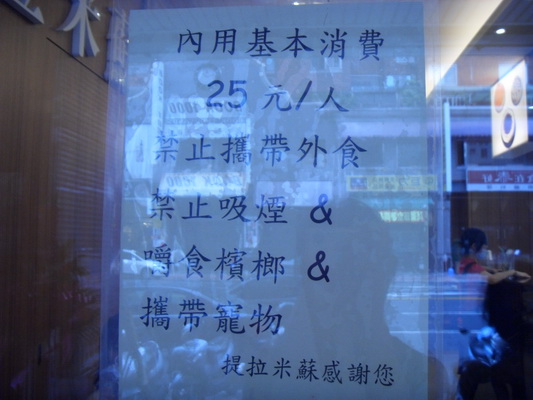 內用基本消費
25 元/人
禁止攜帶外食
禁止吸煙 &
嚼食檳榔 &
攜帶寵物
提拉米蘇感謝您